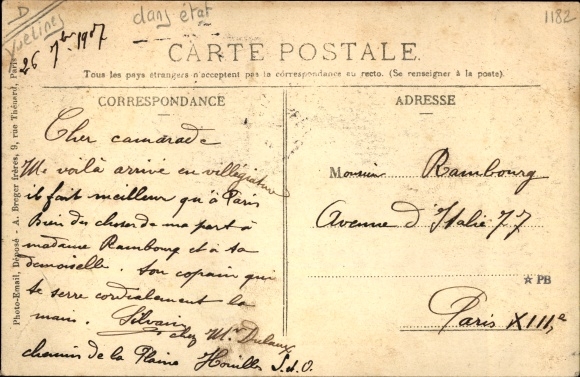 D
Yvelines
dans état
1182
26 7bre 1907
CARTE POSTALE
Tous les pays étrangers n'acceptent pas la correspondance au recto. (Se renseigner à la poste).
CORRESPONDANCE
Cher camarade
Me voilà arrivé en villégiature
il fait meilleur qu'à Paris
Bien des choses de ma part à
madame Rambourg et à sa
demoiselle. Ton copain qui
te serre cordialement la
main. Silvain
chez Mr Dulaux
chemin de la Plaine Houilles S.&O.
ADRESSE
Monsieur Rambourg
Avenue d'Italie 77
☆ PB
Paris XIII,e
Photo-Email, Déposé - A. Breger frères, 9, rue Thénard, Paris